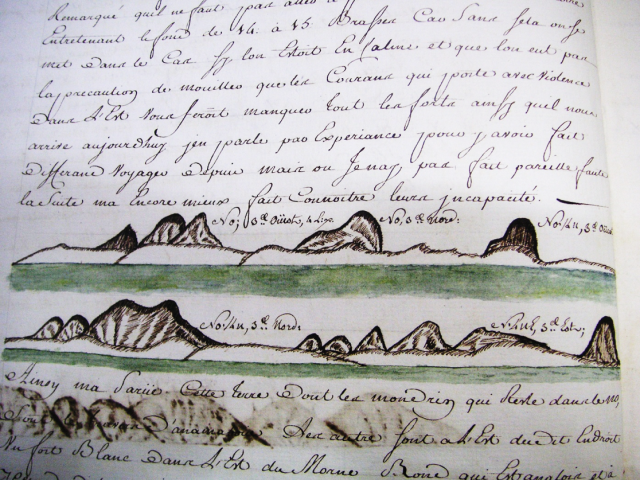 Remarqué quil ne faut pas
Entretenant le fond de 14. à 15. Brasses Car Sans sela on se
met dans le Cas sy lon Estoit En Calme et que lon eut pas
la precaution de mouiller que les Courans qui porte avec violence
dans L'Est vous feroit manquer tout les forts ainsy quel nous
arrive aujourdhuy jen parle par Experiance pour y avoir fait
differant voyages depuis mais ou Je nay pas fait pareille faute
la Suite ma Encore mieux fait Connoitre leurs jncapacité.
No; 3.d Oüest, 4 Lge
No, 3.d Nord:
No:¼N, 3.d Oüest
No:¼N, 3.d Nord:
N:¼NE, 3.d Est;
Ainsy ma Parüe Cette terre dont les mondrin qui Reste dans le no,
Sont Les autre Sont a L'Est du dit Endroit
Un fort Blanc dans L'Est du Morne Rond qui